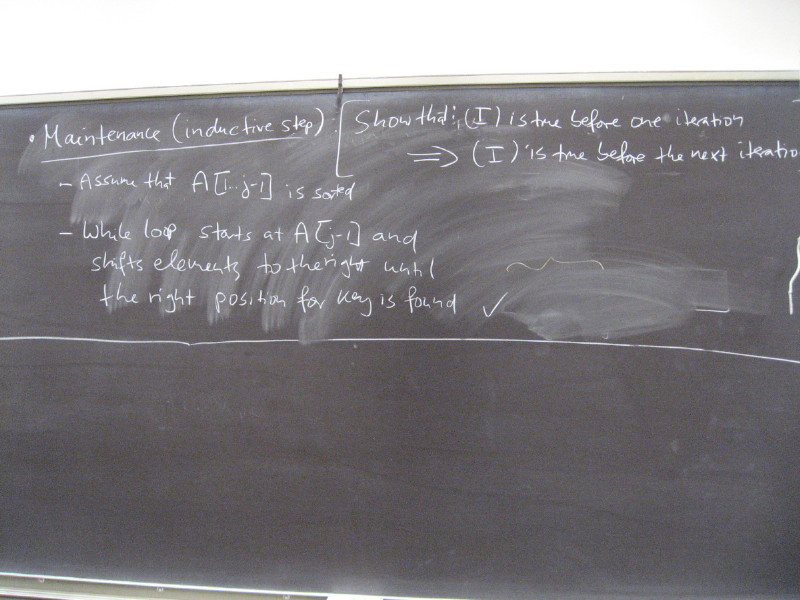 • Maintenance (inductive step): [Show that: (I) is true before one iteration
⟹ (I) is true before the next iteratio
- Assume that A[1...j-1] is sorted
- While loop starts at A[j-1] and
shifts elements to the right until
the right position for key is found ✓